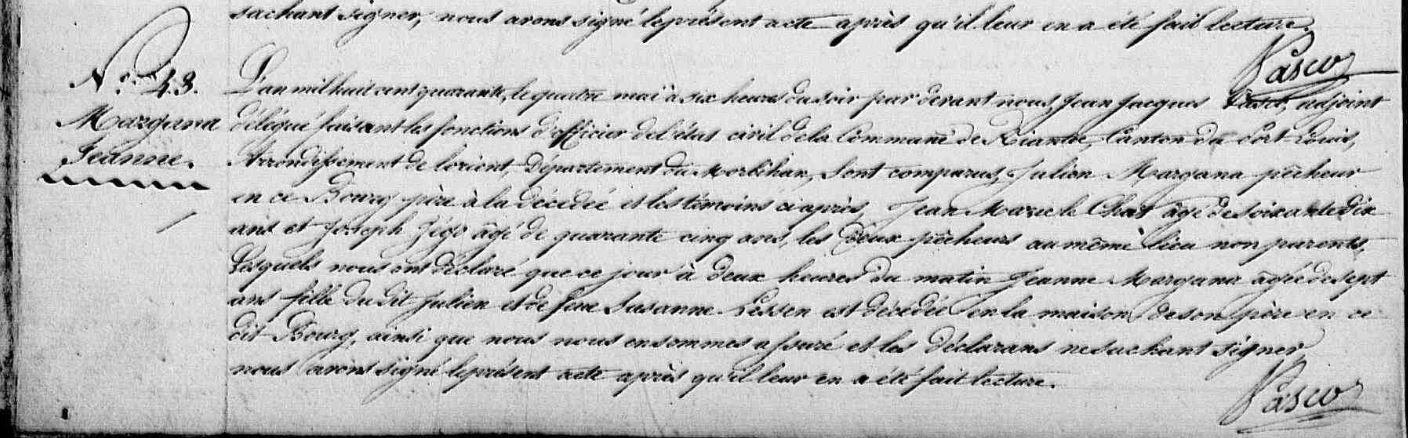 sachant signer, nous avons signé le présent acte après qu'il leur en a été fait lecture.
Pasco
N.o 43.
Margana
Jeanne.
L'an mil huit cent quarante, le quatre mai à six heures du soir par devant nous Jean Jacques Pasco, adjoint
délégué faisant les fonctions d'officier de l'état civil de la Commune de Riantec, Canton du Port-Louis,
Arrondissement de Lorient, Département du Morbihan, Sont comparus Julien Margana pêcheur
en ce Bourg père à la décédée et les témoins ci après, Jean Marie le Chat âgé de soixante dix
ans et Joseph Zigo âgé de quarante cinq ans, les deux pêcheurs au même lieu non parents,
Lesquels nous ont déclaré que ce jour à deux heures du matin Jeanne Margana âgée de sept
ans fille du dit Julien et de feue Susanne Lessen est décédée en la maison de son père en ce
dit Bourg, ainsi que nous nous en sommes assuré et les déclarans ne sachant signer
nous avons signé le présent acte après qu'il leur en a été fait lecture.
Pasco